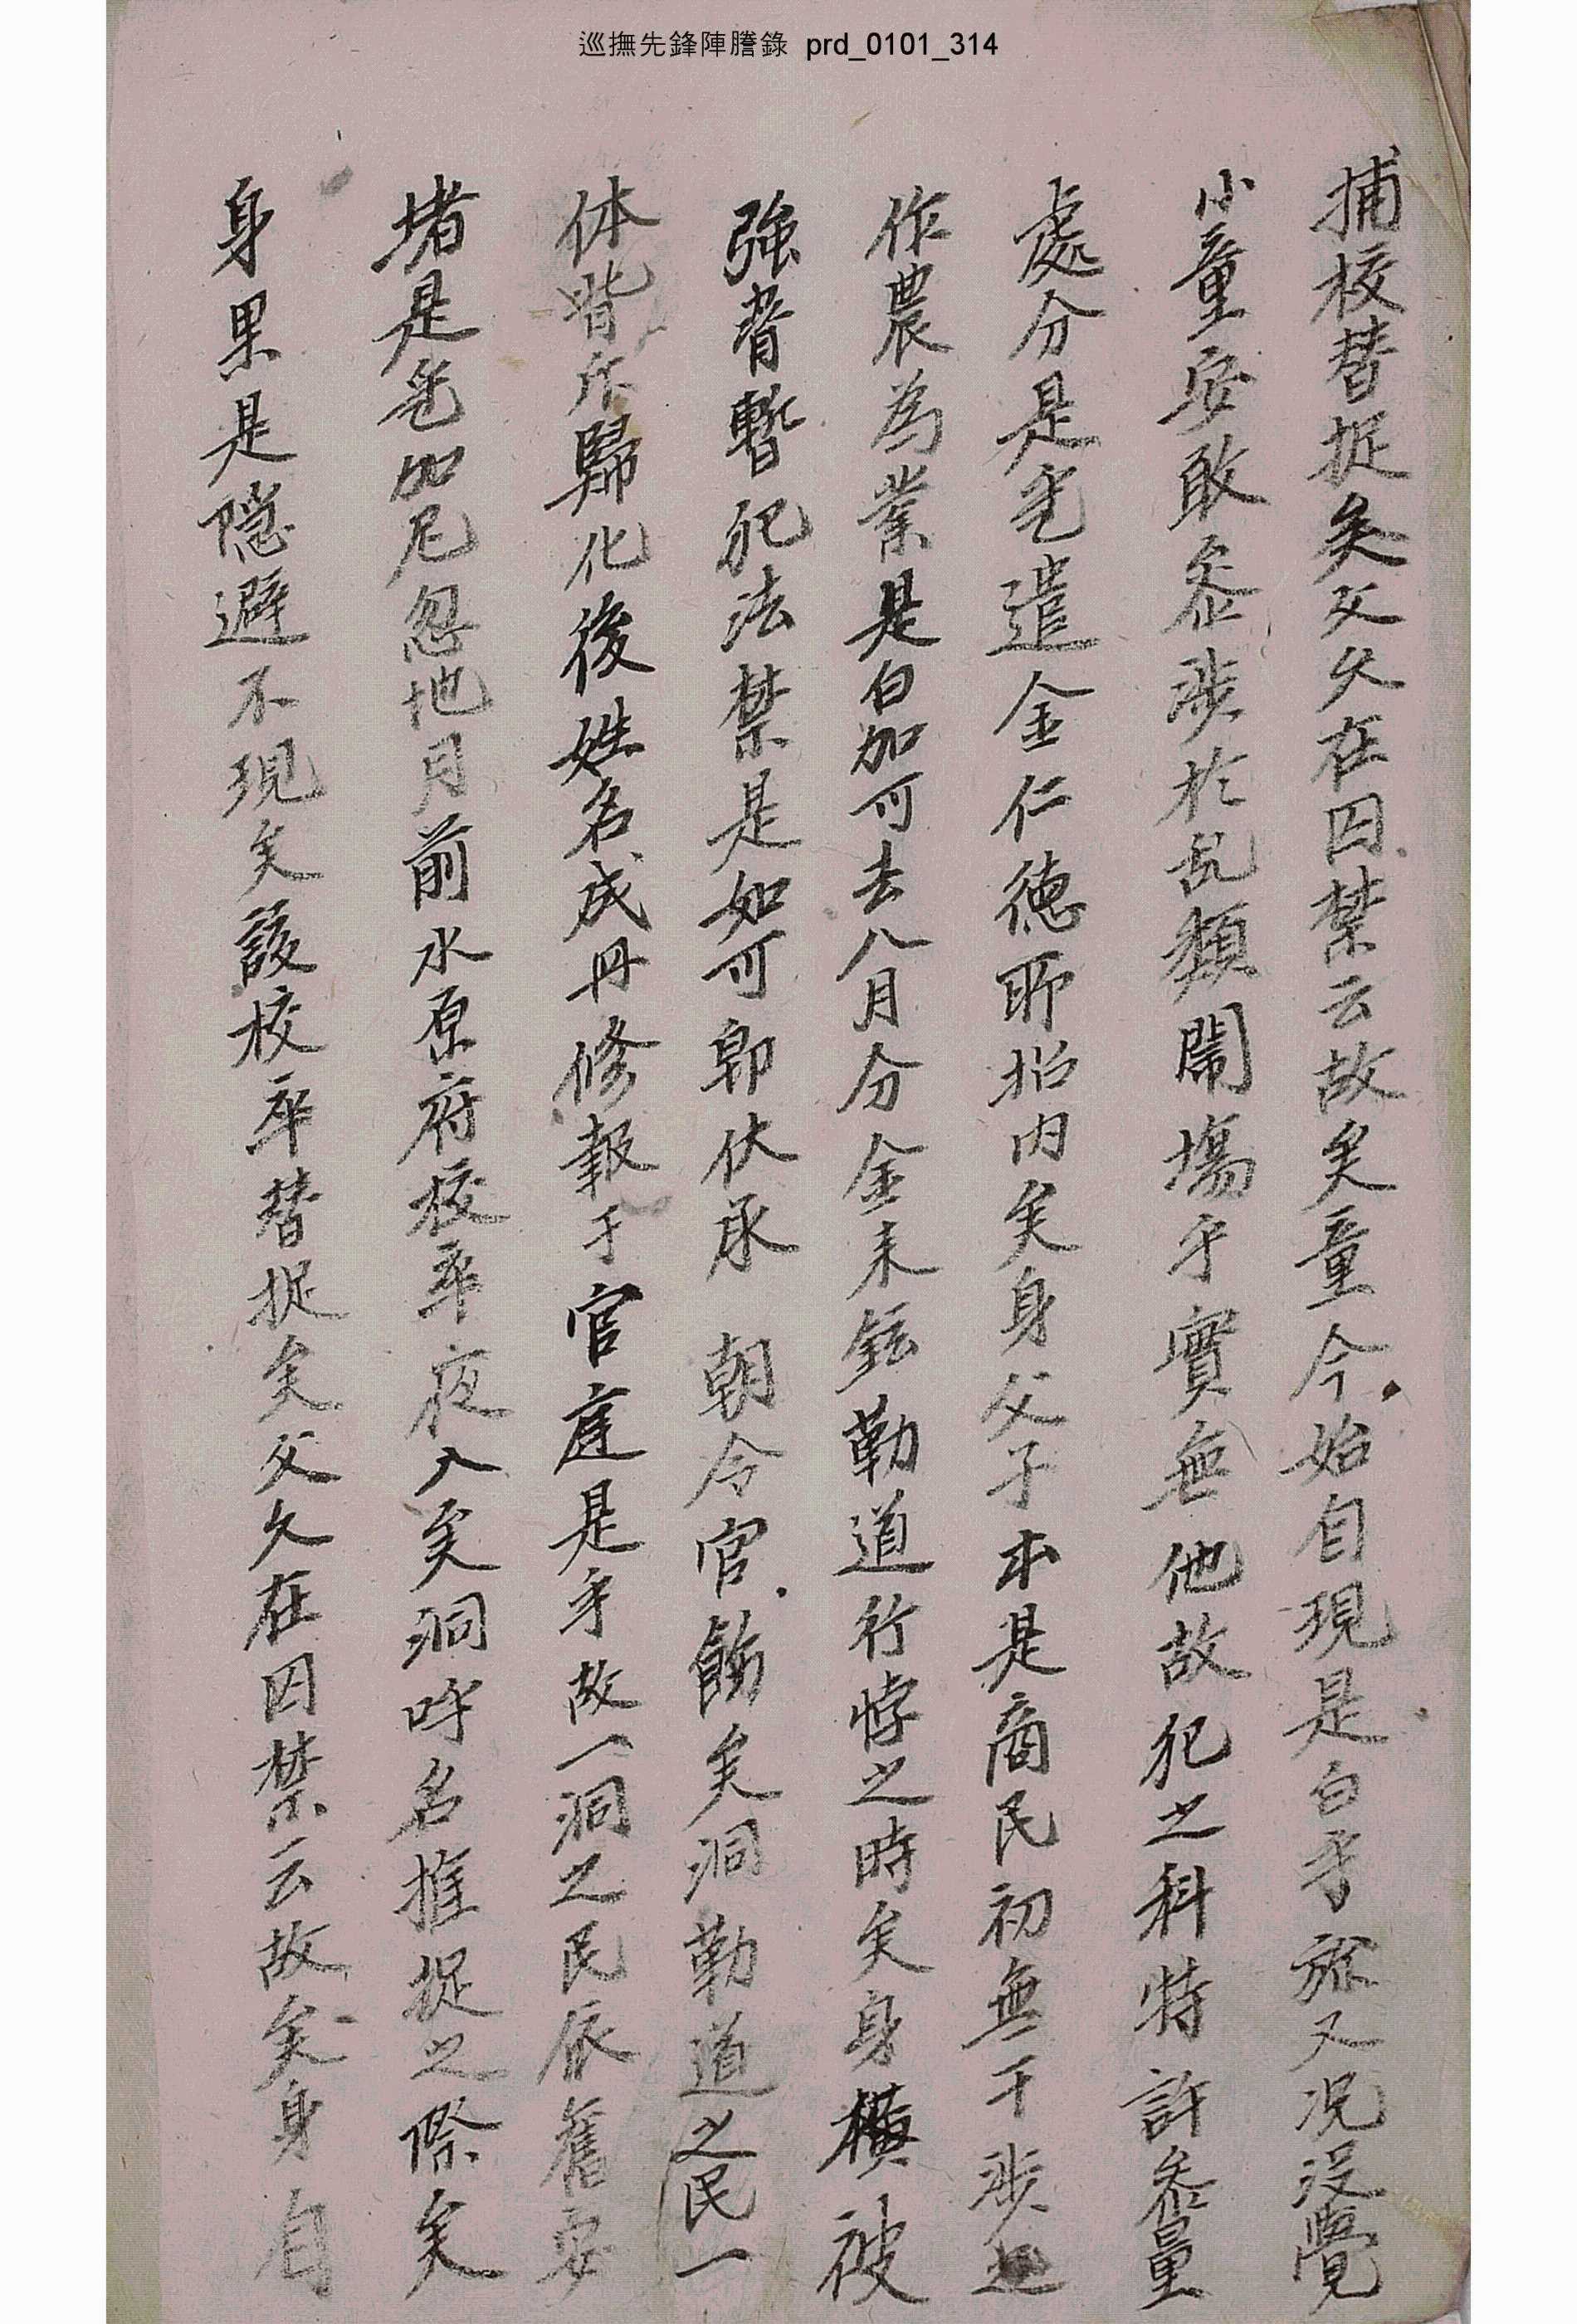 巡撫先鋒陣謄錄 prd_0101_314
捕校替捉矣父久在囚禁云故矣童今始自現是白乎旀又況沒覺
小童安敢叅涉於乱類鬧場乎實無他故犯之科特許叅量
處分是乯遣金仁德所招內矣身父子本是商民初無干涉
作農為業是白加可去八月分金未鉉勒道行悖之時矣身橫被
強脅暫犯法禁是如可卽伏承 朝令官飭矣洞勒道之民一
体皆斥歸化後姓名成冊修報于官庭是乎故一洞之民依舊安
堵是乯加尼忽地月前水原府校卒夜入矣洞呼名推捉之際矣
身果是隠避不現矣該校卒替捉矣父久在囚禁云故矣身自